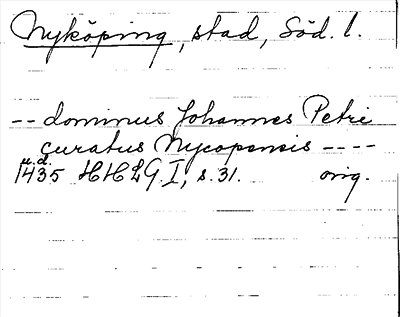 Nyköping, stad, Söd. l.
-- dominus Johannes Petri
curatus Nycopensis ----
u.d.
1435 HH LG. I, s. 31. orig.